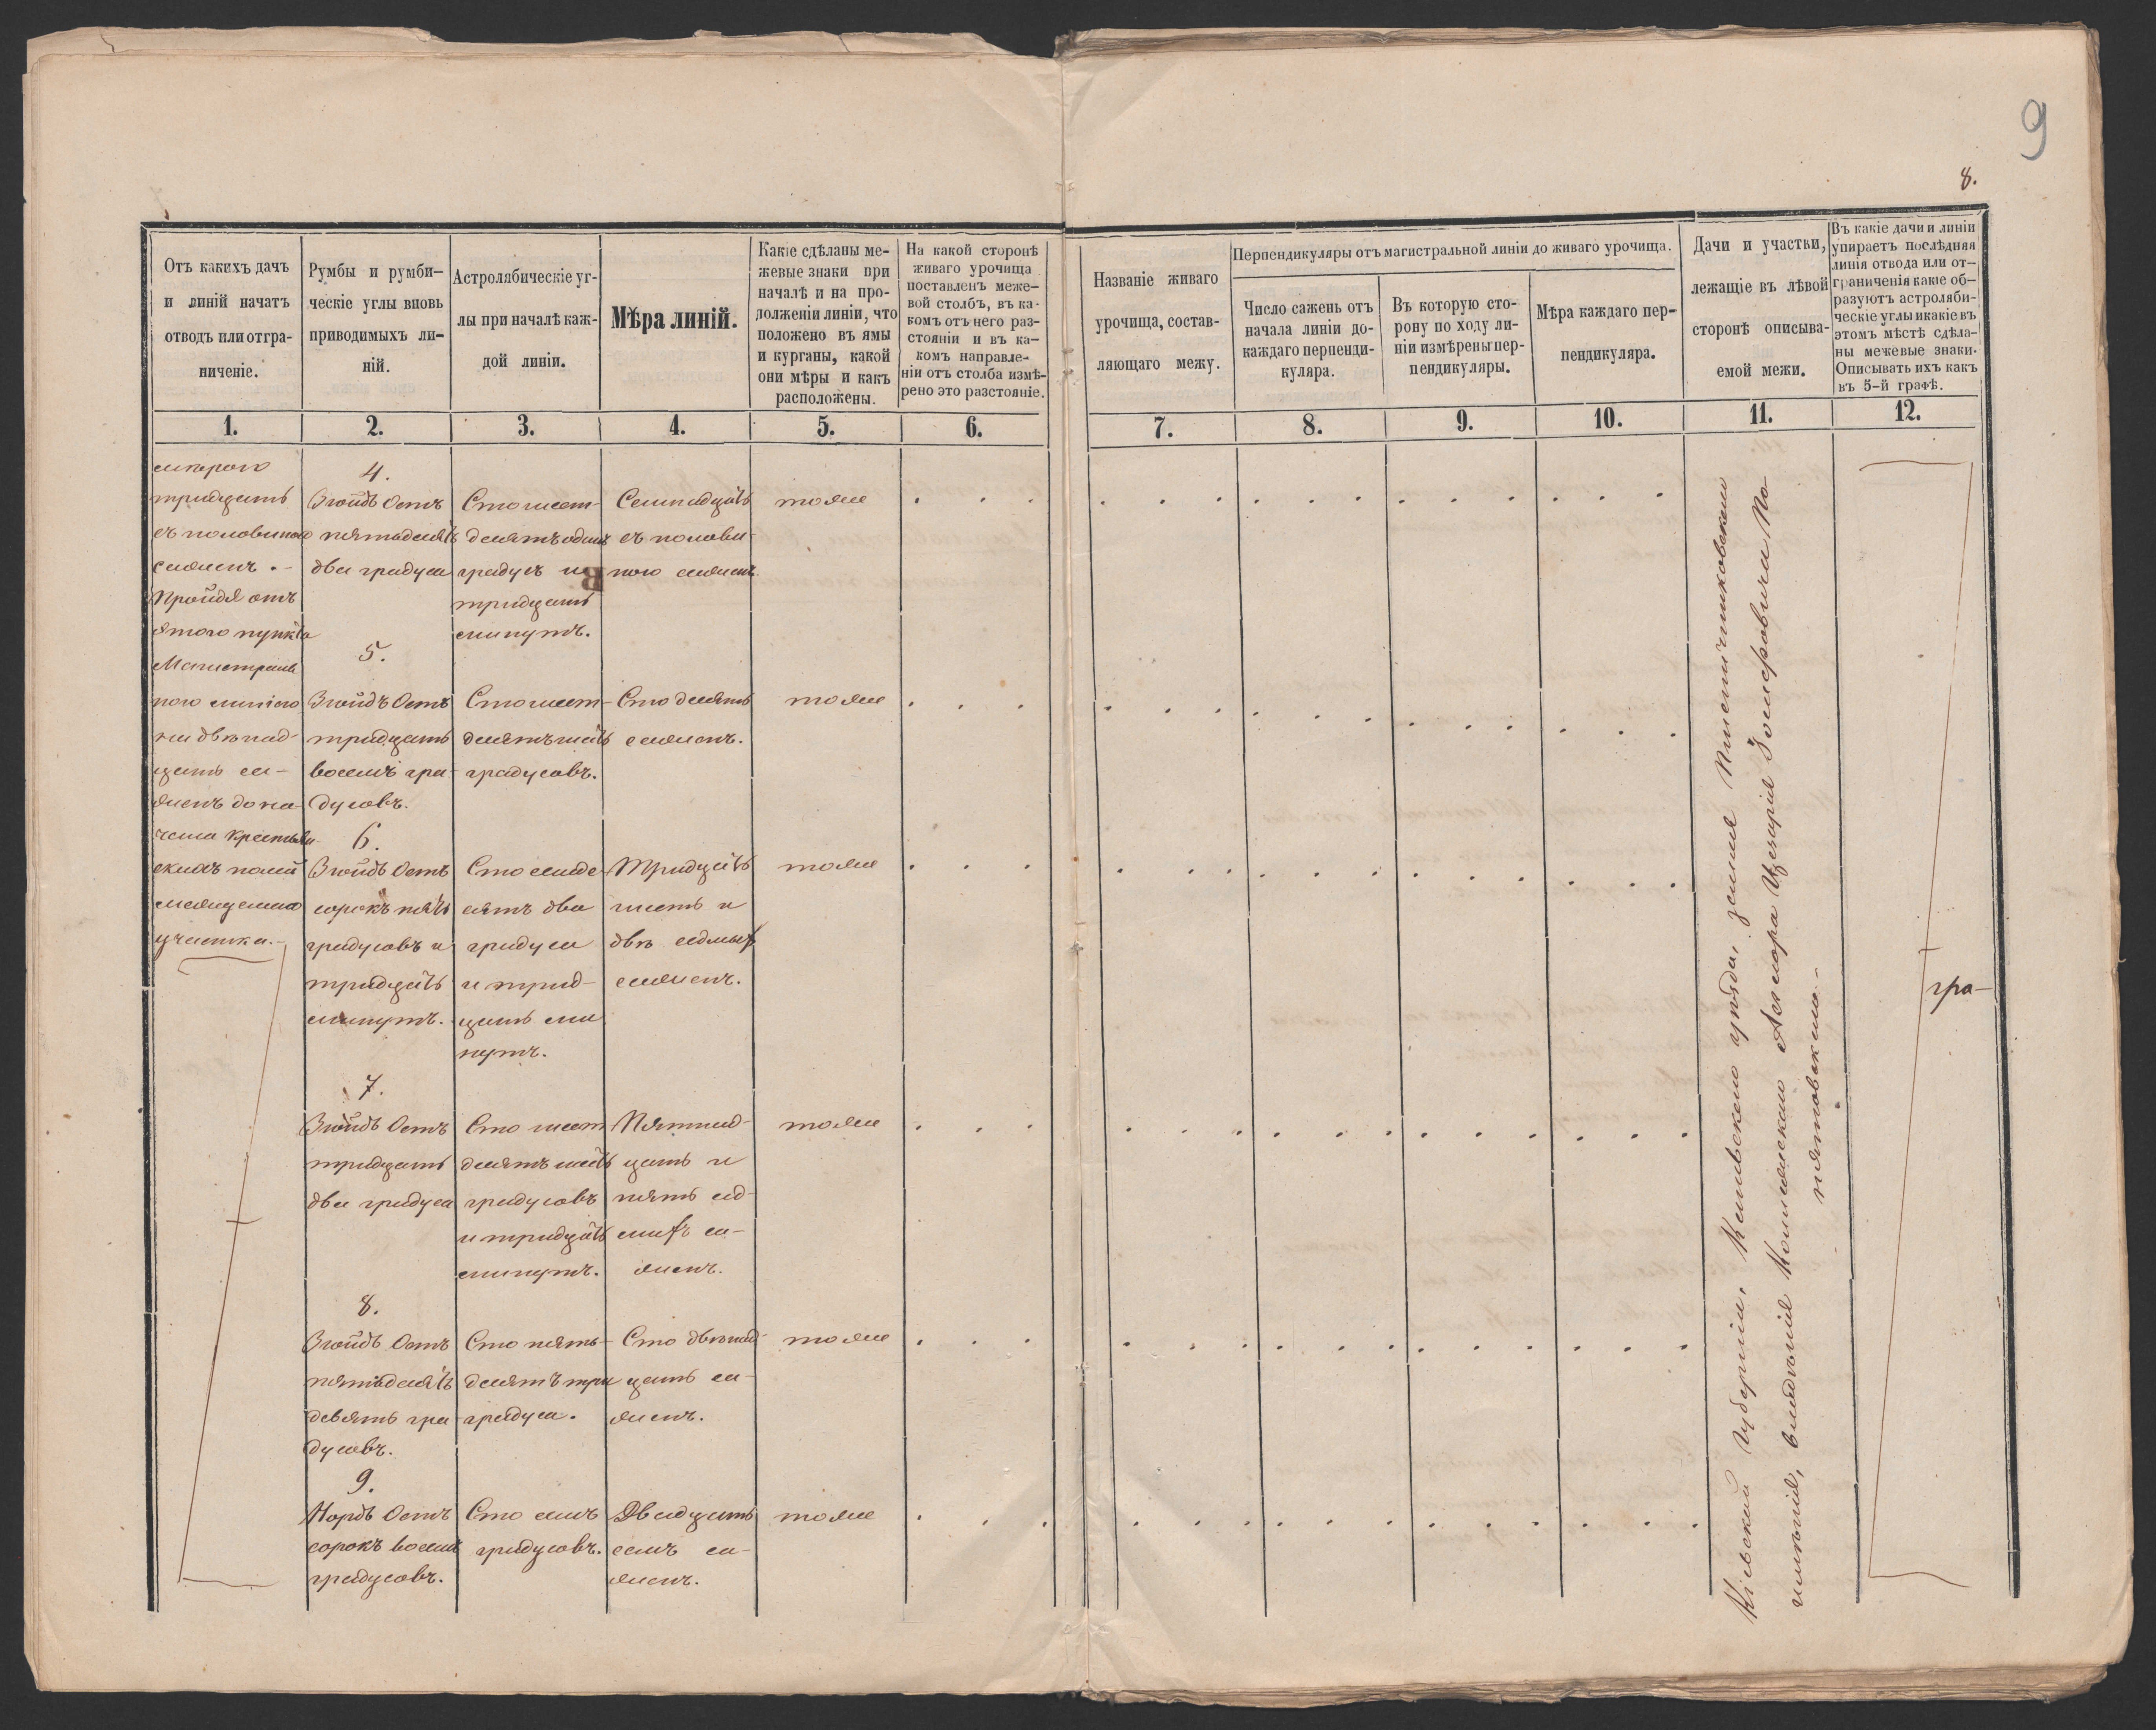 9
8.
Отъ какихъ дачъ
и линій начатъ
отводъ или отгра-
ниченіе.
Румбы и румби-
ческіе углы вновь
приводимыхъ ли-
ній.
Астролябическіе уг-
лы при началѣ каж-
дой линіи.
Мѣра линій.
Какіе сдѣланы ме-
жевые знаки при
началѣ и на про-
долженіи линіи, что
положено въ ямы
и курганы, какой
они мѣры и какъ
расположены.
На какой сторонѣ
живаго урочища
поставленъ меже-
вой столбъ, въ ка-
комъ отъ него раз-
стояніи и въ ка-
комъ направле-
ніи отъ столба измѣ-
рено это разстояніе.
Названіе живаго
урочища, состав-
ляющаго межу.
Перпендикуляры отъ магистральной линіи до живаго урочища.
Число сажень отъ
начала линіи до-
каждаго перпенди-
куляра.
Въ которую сто-
рону по ходу ли-
ніи измѣрены пер-
пендикуляры.
Мѣра каждаго пер-
пендикуляра.
Дачи и участки,
лежащіе въ лѣвой
сторонѣ описыва-
емой межи.
Въ какіе дачи и линіи
упираетъ послѣдняя
линія отвода или от-
граниченія какіе об-
разуютъ астроляби-
ческіе углы и какіе въ
этомъ мѣстѣ сдѣла-
ны межевые знаки.
Описывать ихъ какъ
въ 5-й графѣ.
1. 2. 3. 4. 5. 6. 7. 8. 9. 10. 11. 12.
мѣрою
тридцать
съ половиною
сажень.-
Пройдя отъ
этого пункта
Магистраль
ною линіею
на двѣнад-
цать са-
жень до на-
чала крестьян
скихъ полей
участка.-
4.
Зюйдъ Остъ
пятьдесятъ
два градуса
Сто шесть-
десятъ одинъ
градусъ и
тридцать
минутъ.
Семнадцать
съ полови-
ною сажень.
тоже
5.
Зюйдъ Остъ
тридцать
восемь гра-
дусовъ.
Сто шесть-
десятъ шесть
градусовъ.
Сто десять
сажень.
тоже
6.
Зюйдъ Остъ
сорокъ пять
градусовъ и
тридцать
минутъ.
Сто семьде-
сятъ два
градуса
и трид-
цать ми
нутъ.
Тридцать
шесть и
двѣ седмыхъ
сажень.
тоже
7.
Зюйдъ Остъ
тридцать
два градуса
Сто шесть
десятъ шесть
градусовъ
и тридцать
минутъ.
Пятнад-
цать и
пять сед-
мыхъ са-
жень.
тоже
8.
Зюйдъ Остъ
пятьдесятъ
девять гра
дусовъ.
Сто пять-
десятъ три
градуса.
Сто двѣнад-
цать са-
жень.
тоже
9.
Нордъ Остъ
сорокъ восемь
градусовъ.
Сто семь
градусовъ.
Двадцать
семь са-
жень.
тоже
Кіевской губерніи, Каневскаго уѣзда, земля Пшеничниковскаго
имѣнія, владѣнія Коллежскаго Ассесора Цезарія Іосифовича По-
нятовскаго.-
гра-